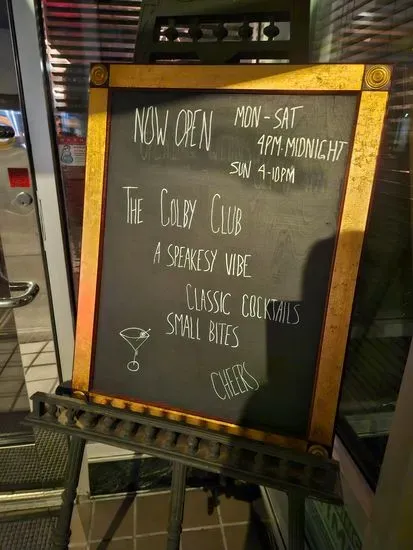 NOW OPEN
MON - SAT
4PM-MIDNIGHT
SUN 4-10PM
THE COLBY CLUB
A SPEAKESY VIBE
CLASSIC COCKTAILS
SMALL BITES
CHEERS